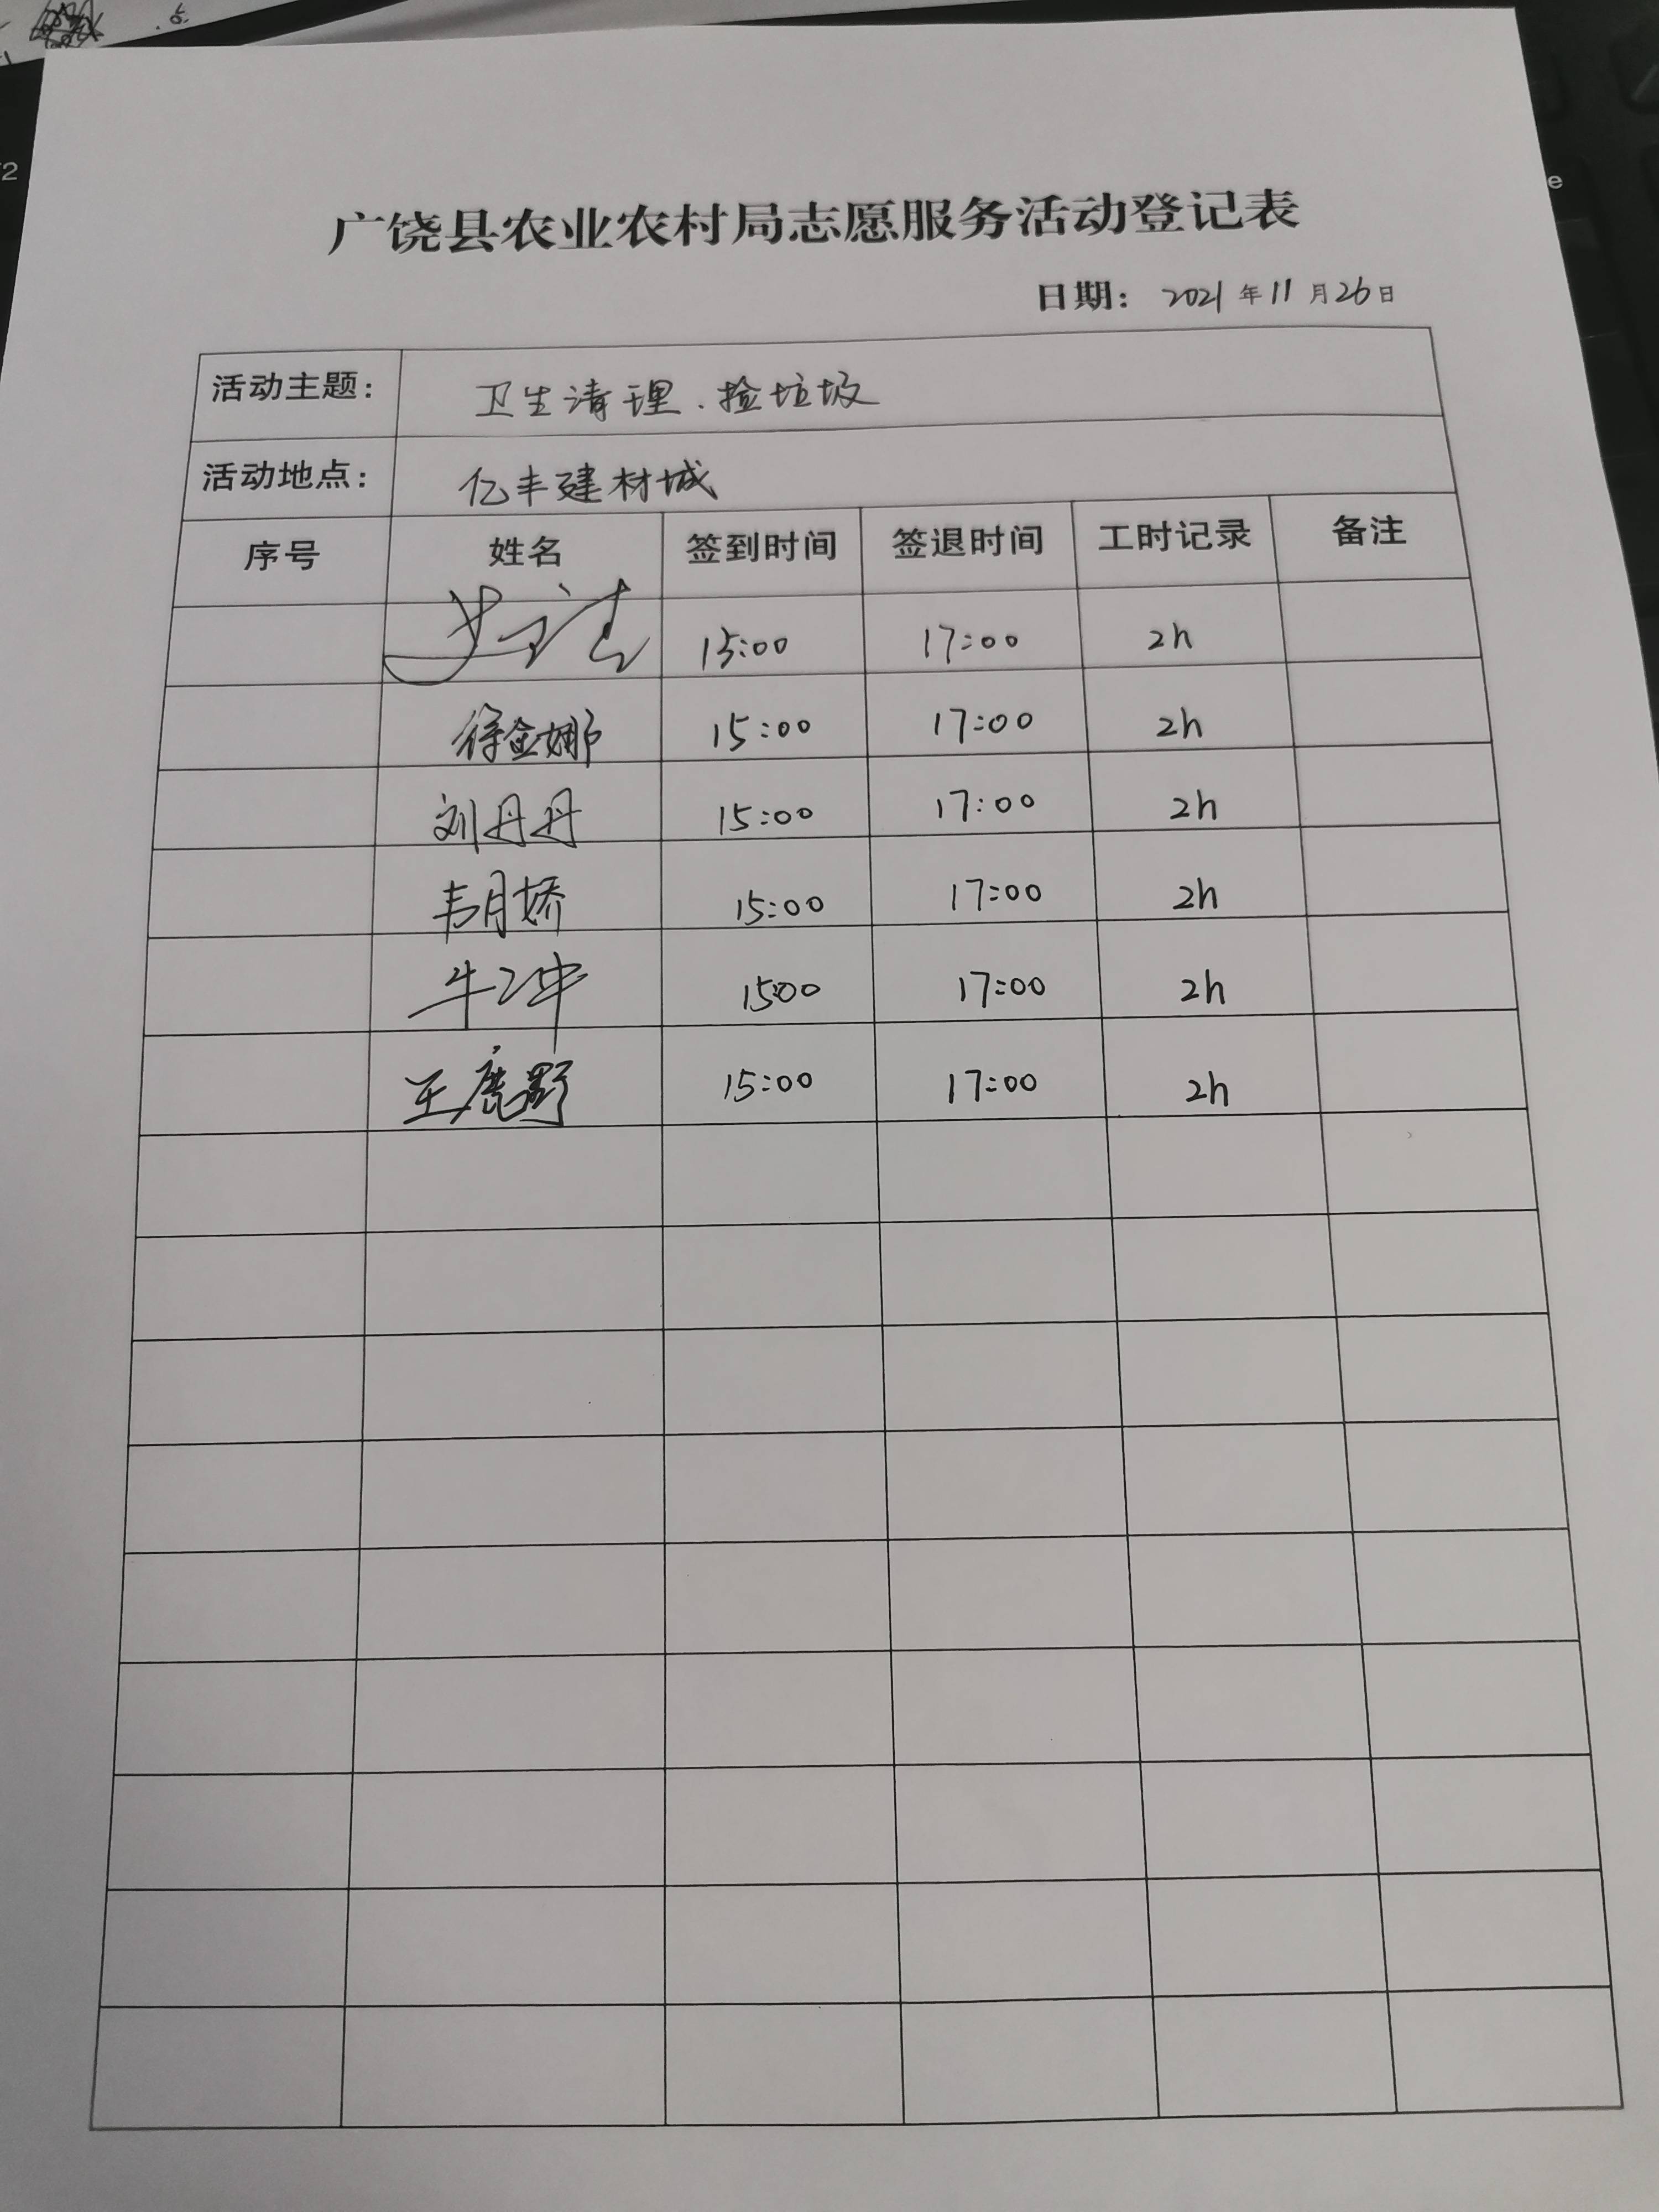 广饶县农业农村局志愿服务活动登记表
日期: 2021年11月26日
活动主题: 卫生清理.捡垃圾
活动地点: 亿丰建材城
序号 姓名 签到时间 签退时间 工时记录 备注
15:00 17:00 2h
徐金娜 15:00 17:00 2h
刘丹丹 15:00 17:00 2h
韦月娇 15:00 17:00 2h
15:00 17:00 2h
王鹿野 15:00 17:00 2h